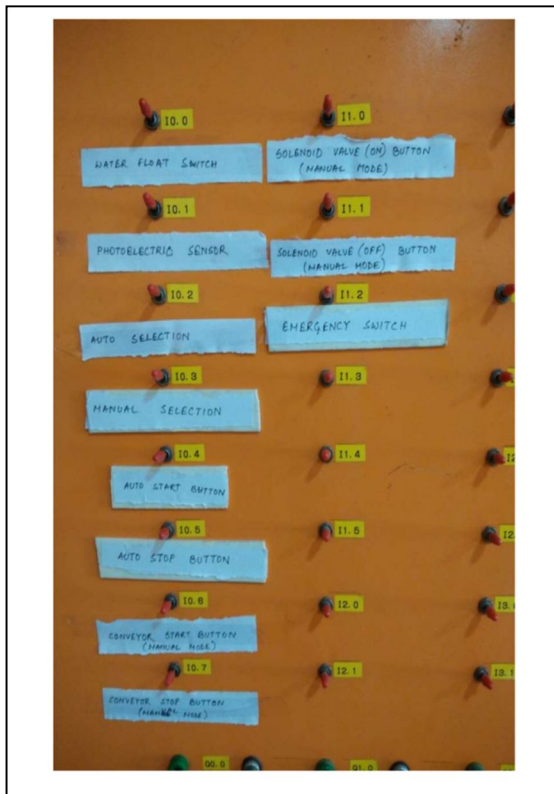 I0.0
WATER FLOAT SWITCH
I0.1
PHOTOELECTRIC SENSOR
I0.2
AUTO SELECTION
I0.3
MANUAL SELECTION
I0.4
AUTO START BUTTON
I0.5
AUTO STOP BUTTON
I0.6
CONVEYOR START BUTTON
(MANUAL MODE)
I0.7
CONVEYOR STOP BUTTON
(MANUAL MODE)
Q0.0
I1.0
SOLENOID VALVE (ON) BUTTON
(MANUAL MODE)
I1.1
SOLENOID VALVE (OFF) BUTTON
(MANUAL MODE)
I1.2
EMERGENCY SWITCH
I1.3
I1.4
I1.5
I2.0
I2.1
Q1.0
I3.1